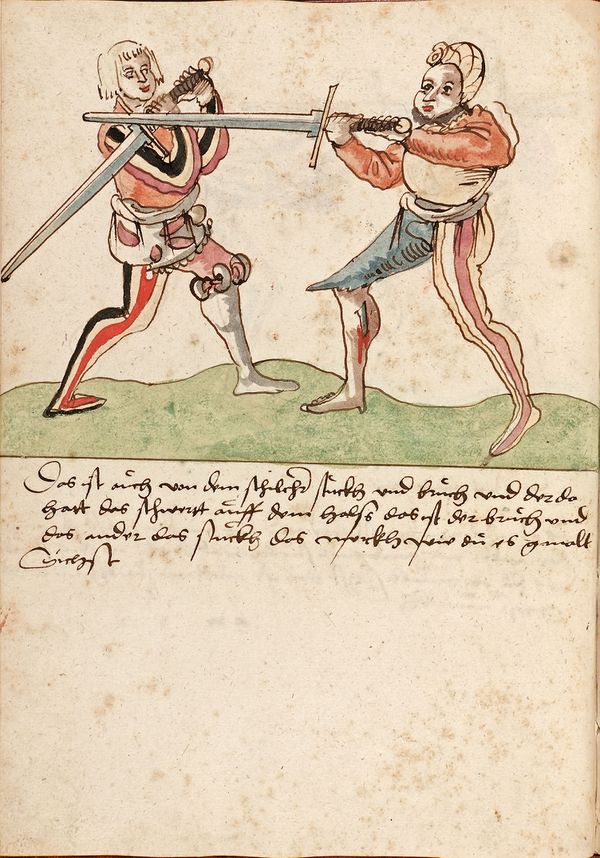 Das ist auch von dem schilcher stuckh und bruch und der da
hatt das schwertt auff dem halss das ist der bruch und
das ander das stuckh das merckh wie du es gmalt
Sichst